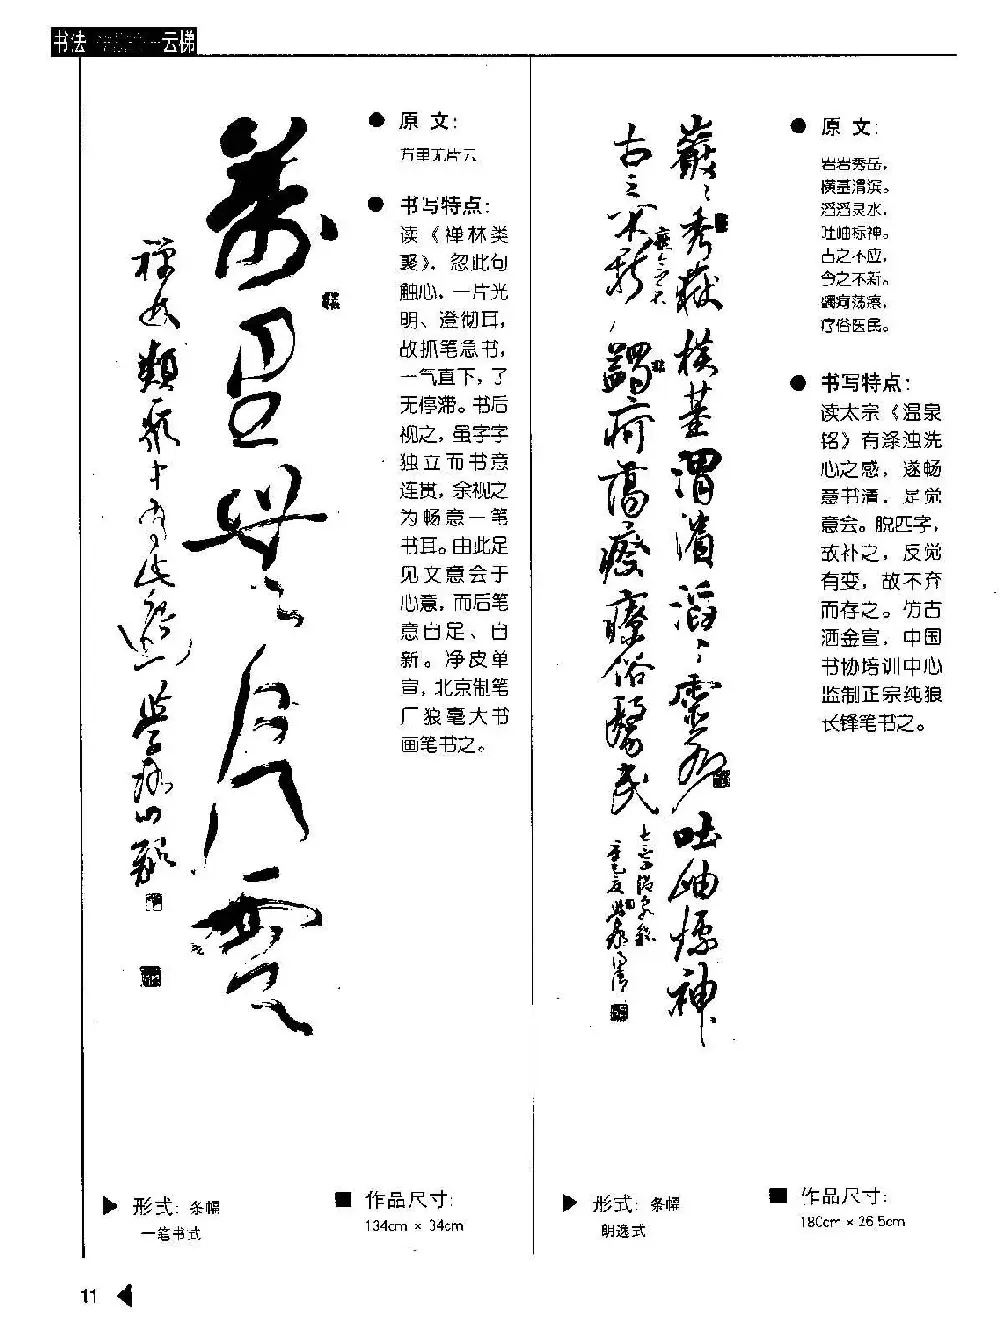 书法
云梯
萬里無片雲
禅林類聚
● 原文:
万里无片云
● 书写特点:
读《禅林类
聚》，忽此句
触心，一片光
明、澄彻耳，
故抓笔急书，
一气直下，了
无停滞。书后
视之，虽字字
独立而书意
连贯，余视之
为畅意一笔
书耳。由此足
见文意会于
心意，而后笔
意自足、自
新。净皮单
宣，北京制笔
厂狼毫大书
画笔书之。
▶ 形式: 条幅
一笔书式
■ 作品尺寸:
134cm × 34cm
巖〻秀嶽橫基渭濱滔〻靈水吐岫標神
古之不應今之不新蠲疴蕩瘵療俗醫民
● 原文:
岩岩秀岳，
横基渭滨。
滔滔灵水，
吐岫标神。
古之不应，
今之不新。
蠲疴荡瘵，
疗俗医民。
● 书写特点:
读太宗《温泉
铭》有涤浊洗
心之感，遂畅
意书清，足觉
意会。脱匹字，
故补之，反觉
有变，故不弃
而存之。仿古
洒金宣，中国
书协培训中心
监制正宗纯狼
长锋笔书之。
▶ 形式: 条幅
明选式
■ 作品尺寸:
180cm × 26.5cm
11